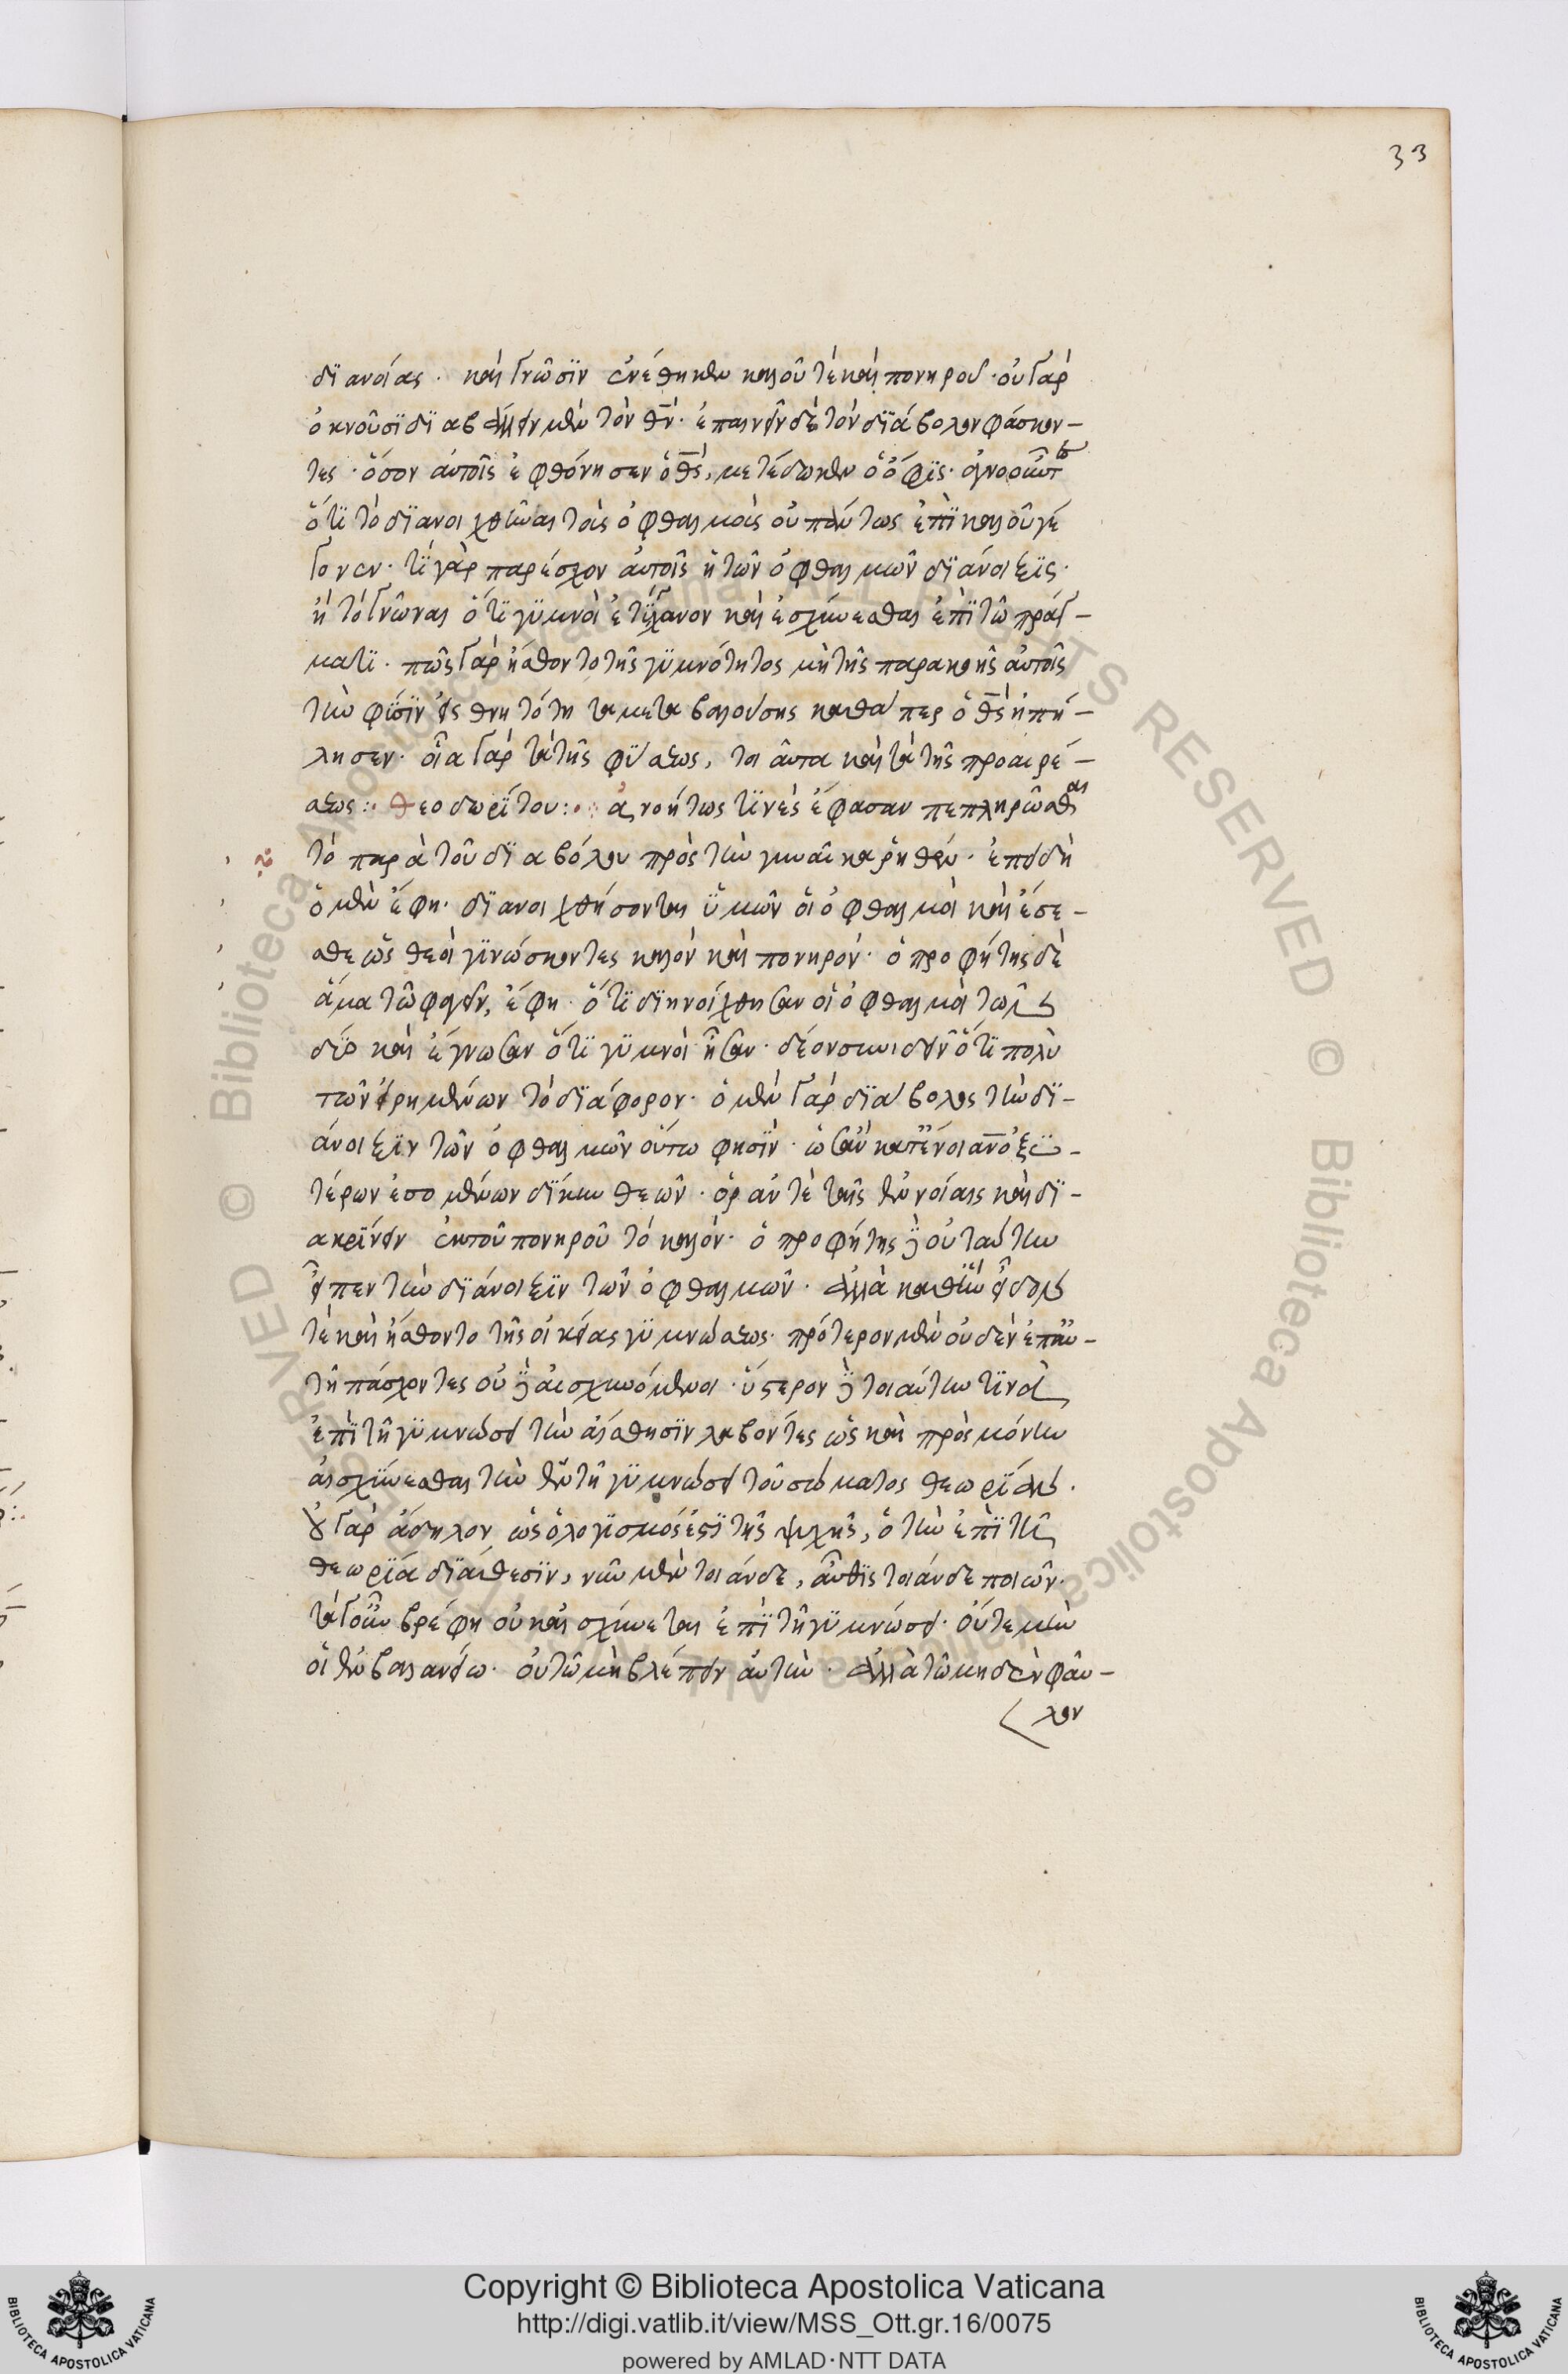 33
διανοίας · καὶ γνῶσιν ἐνέθηκεν καλοῦ τὲ καὶ πονηροῦ · οὐ γὰρ
ὀκνοῦσι διαβάλλειν μὲν τὸν θν · ἐπαινεῖν δὲ τὸν διάβολον φάσκον-
τες · ὅσον αὐτοῖς ἐφθόνησεν ὁ θς, μετέδωκεν ὁ ὄφις · ἀγνοοῦντ
ὅτι τὸ διανοιχθῆναι τοὺς ὀφθαλμοὺς οὐ πάντως ἐπὶ καλοῦ γέ
γονεν · τί γὰρ παρέσχον αὐτοῖς ἡ τῶν ὀφθαλμῶν διάνοιξις ·
ἢ τὸ γνῶναι ὅτι γυμνοὶ ἐτύγχανον καὶ ἐσχύνεσθαι ἐπὶ τῶ πράγ-
ματι · πῶς γὰρ ἤσθοντο τῆς γυμνότητος μὴ τῆς παρακοῆς αὐτοῖς
τὴν φύσιν εἰς θνητότητα μεταβαλούσης καθάπερ ὁ θς ἠπεί-
λησεν · οἷα γὰρ τὰ τῆς φύσεως, τοιαῦτα καὶ τὰ τῆς προαιρέ-
σεως :· Θεοδωρίτου :· ἀνοήτως τινὲς ἔφασαν πεπληρῶσθαι
τὸ παρὰ τοῦ διαβόλου πρὸς τὴν γυναῖκα ῥηθέν · ἐπειδὴ
ὁ μὲν ἔφη · διανοιχθήσονται ὑμῶν οἱ ὀφθαλμοὶ καὶ ἔσε-
σθε ὡς θεοὶ γινώσκοντες καλὸν καὶ πονηρόν · ὁ προφήτης δὲ
ἅμα τῶ φαγεῖν, ἔφη · ὅτι διηνοίχθησαν οἱ ὀφθαλμοὶ τῶν
δύο καὶ ἔγνωσαν ὅτι γυμνοὶ ἦσαν · δέον συνιδεῖν ὅτι πολὺ
τῶν εἰρημένων τὸ διάφορον · ὁ μὲν γὰρ διάβολος τὴν δι-
άνοιξιν τῶν ὀφθαλμῶν οὕτω φησὶν ·
τέρων ἐσομένων δίκην θεῶν · ὁρᾶν τὲ ταῖς ἐννοίαις καὶ δι-
ακρίνειν ἐκ τοῦ πονηροῦ τὸ καλόν · ὁ προφήτης δὲ οὐ ταύτην
εἶπεν τὴν διάνοιξιν τῶν ὀφθαλμῶν · ἀλλὰ καθ' ἣν εἶδον
τὲ καὶ ἤσθοντο τῆς οἰκείας γυμνώσεως · πρότερον μὲν οὐδὲν ἐπ' αὐ-
τῆ πάσχοντες οὐδὲ αἰσχυνόμενοι · ὕστερον δὲ τοιαύτην τινὰ
ἐπὶ τῆ γυμνώσει τὴν αἴσθησιν λαβόντες ὡς καὶ πρὸς μόνην
αἰσχύνεσθαι τὴν ἐν τῆ γυμνώσει τοῦ σώματος θεωρίαν ·
οὐ γὰρ ἄδηλον ὡς ὁ λογισμός ἐστι τῆς ψυχῆς, ὁ τὴν ἐπὶ τῆ
θεωρία διάθεσιν, νῦν μὲν τοιάνδε, αὖθις τοιάνδε ποιῶν ·
τὰ γοῦν βρέφη οὐκ αἰσχύνεται ἐπὶ τῆ γυμνώσει · οὔτε μὴν
οἱ ἐν βαλανείω · οὐ τῶ μὴ βλέπειν αὐτὴν · ἀλλὰ τῶ μηδὲν φαῦ-
λον
Copyright © Biblioteca Apostolica Vaticana
http://digi.vatlib.it/view/MSS_Ott.gr.16/0075
powered by AMLAD·NTT DATA